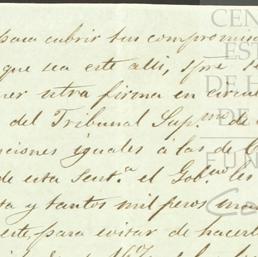 para cubrir sus compromiso
que sea este alli, spre. s
ner otra firma en circul
del Tribunal Supmo. de
ciones iguales á las de C
de esta Sent.a el Gob.no les
ta y tantos mil pesos mon
este, para evitar de hacerl
CEN
EST
DE H
DE
FUN
Ca